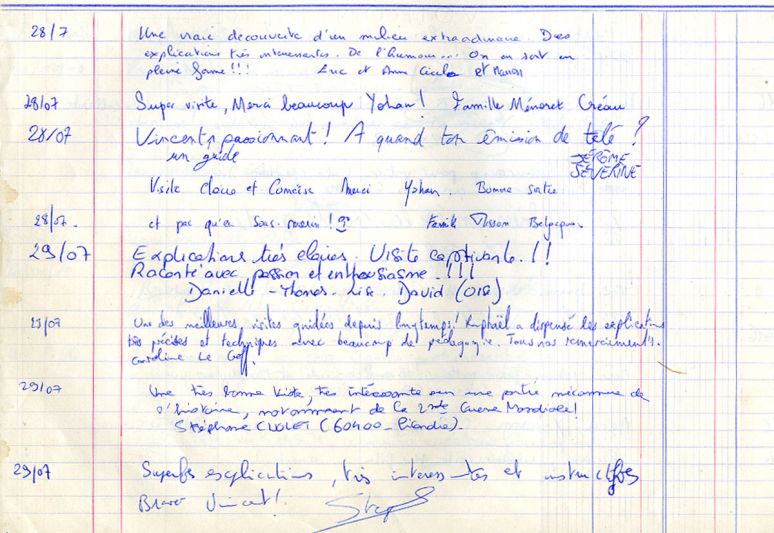 28/7 Une vraie découverte d'un milieu extraordinaire. Des
explications très intéressantes. De l'humour... On en sort en
pleine forme!!! Luc et Ann et Manon
28/07 Super visite, Merci beaucoup Yohan! Famille Ménoret Créau
28/07 Vincent, passionnant! A quand ton émission de télé?
un guide JÉRÔME
SÉVERINE
Visite claire et Concise Merci Yohan. Bonne sortie
28/07. et pas qu'en sous-marin! Famille Belgique.
29/07 Explications très claires. Visite captivante.!!
Raconté avec passion et enthousiasme.!!!
Danielle - Thomas - Lise. David (OISE)
29/07 Une des meilleures visites guidées depuis longtemps! Raphaël a dispensé les explications
très précises et techniques avec beaucoup de pédagogie. Tous nos remerciements.
Caroline Le Goff.
29/07 Une très bonne visite, très intéressante sur une partie méconnue de
l'histoire, notamment de la 2nde Guerre Mondiale!
Stéphane (60400 - Picardie).
29/07 Superbes explications, très intéressantes et instructives
Bravo Vincent!